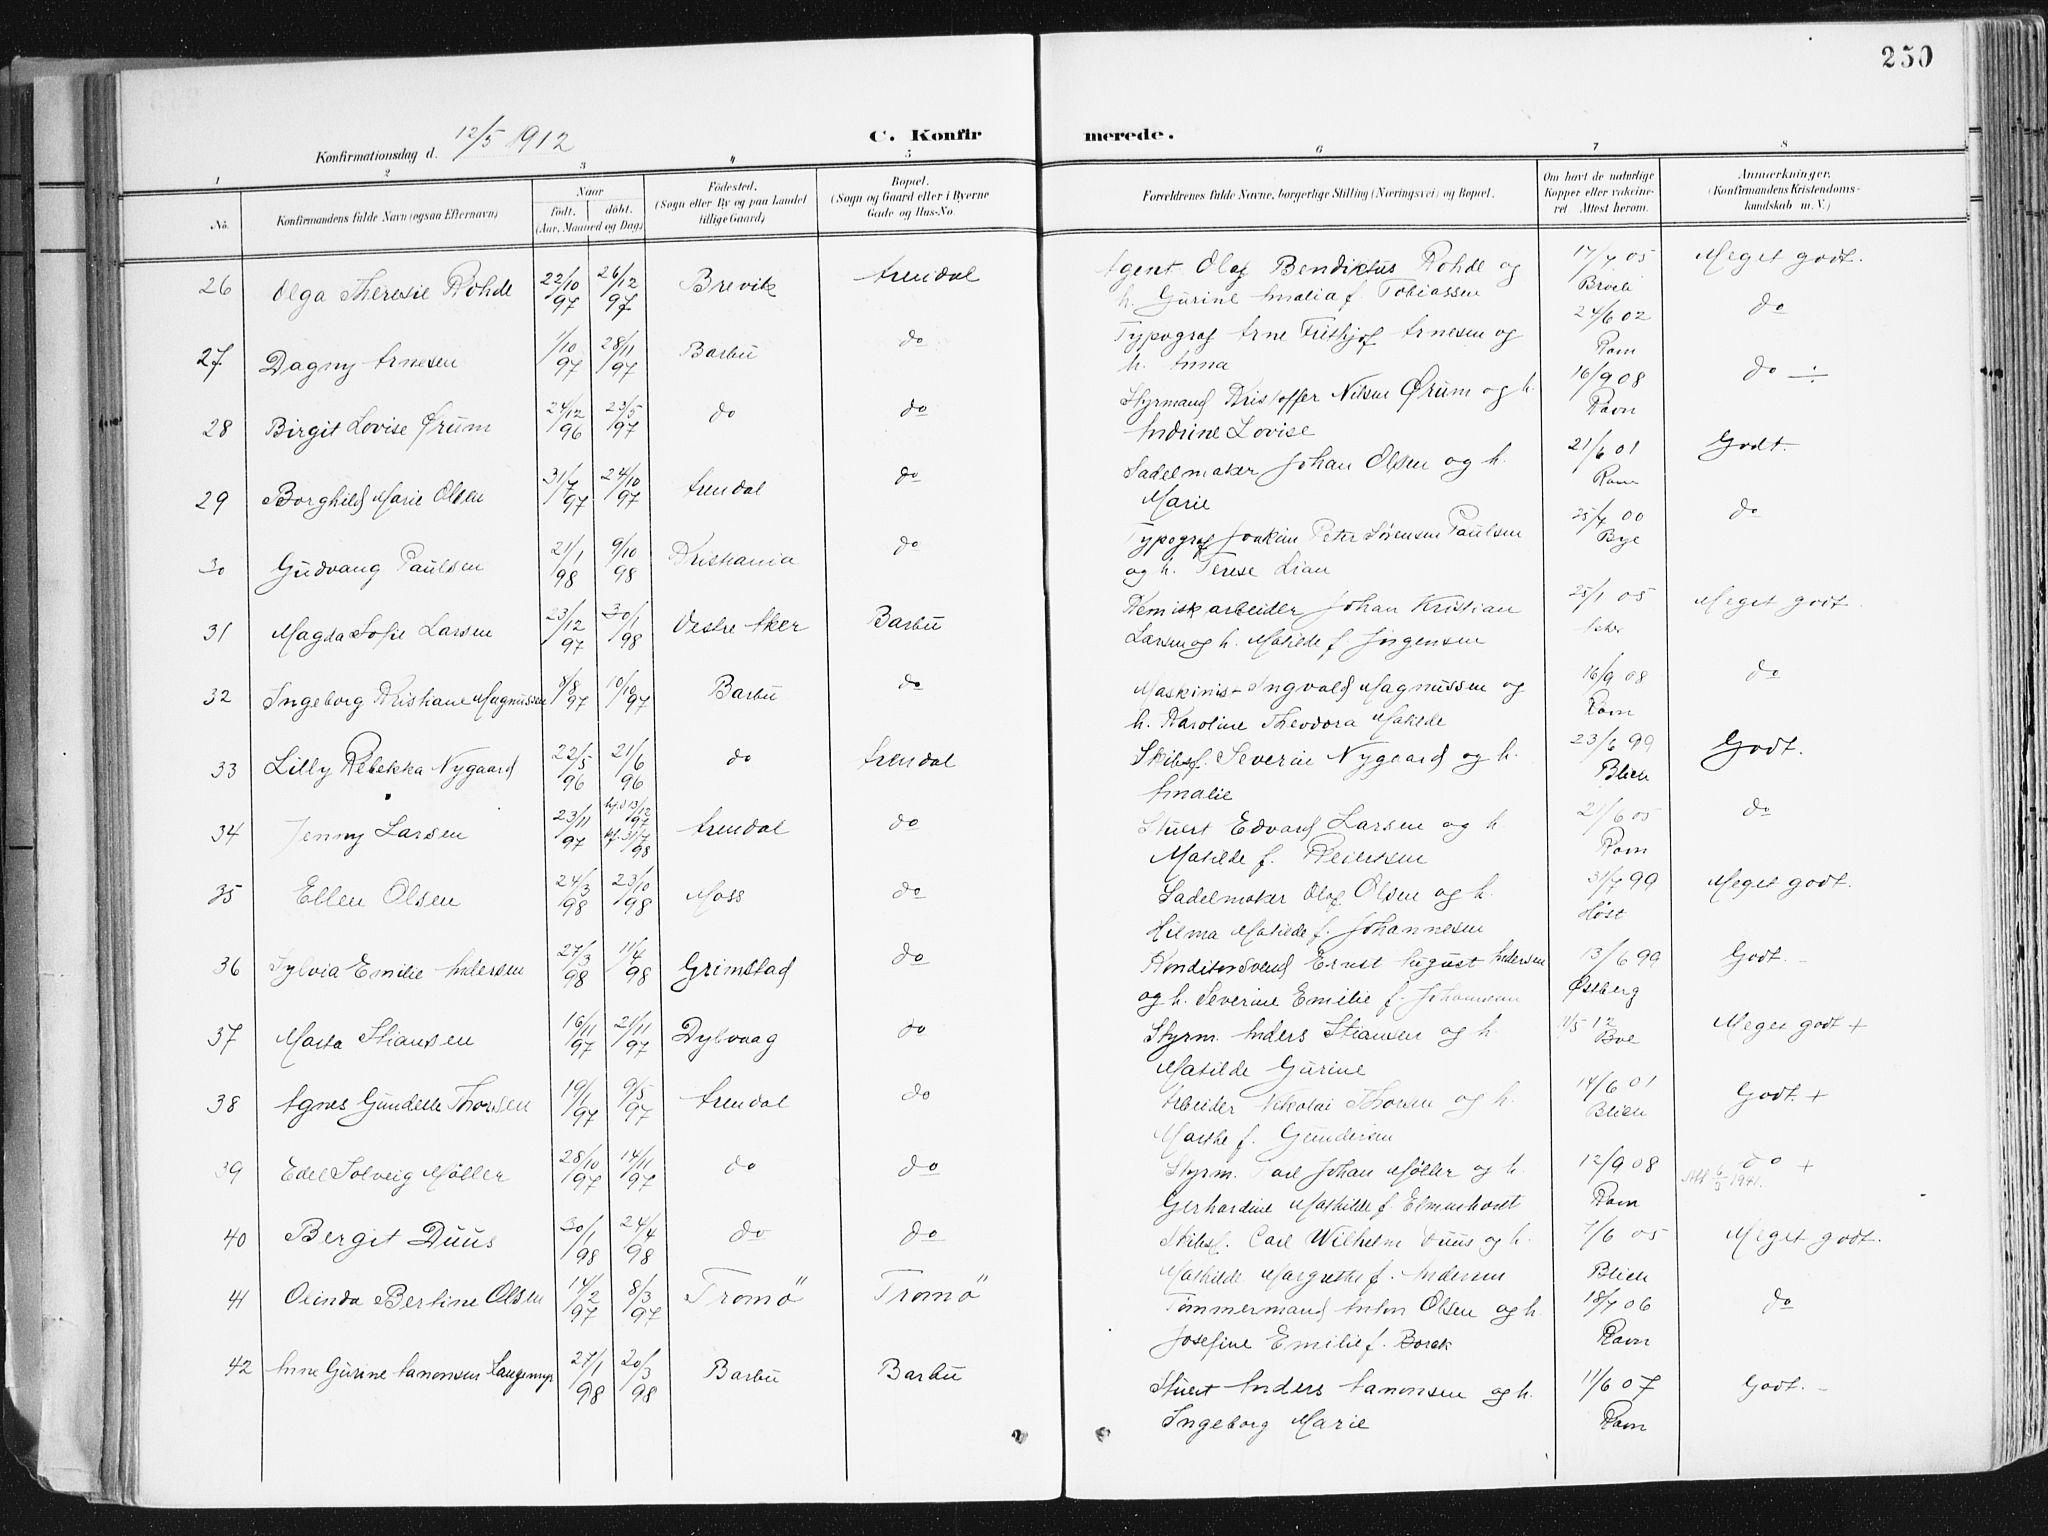 250
Konfirmationsdag d. 12/5 1912
C. Konfirmerede.
1 2 3 4 5 6 7 8
No. Konfirmandens fulde Navn (ogsaa Efternavn) Naar født. døbt. (Aar, Maaned og Dag) Fødested. (Sogn eller By og paa Landet tillige Gaard) Bopæl. (Sogn og Gaard eller i Byerne Gade og Hus-No. Forældrenes fulde Navne, borgerlige Stilling (Næringsvei) og Bopæl. Om havt de naturlige Kopper eller vaccineret. Attest herom. Anmærkninger. (Konfirmandens Kristendomskundskab m. V.)
26 Olga Theresie Rohde 22/10 97 26/12 97 Brevik Arendal Agent Olaf Bendiktus Rohde og 17/7 05 Meget godt.
h. Gurine Amalia f. Tobiassen
27 Dagny Arnesen 1/10 97 28/11 97 Barbu do Typograf Arne Frithjof Arnesen og 24/6 02 do
h. Anna Ravn
28 Birgit Lovise Ørum 24/12 96 23/5 97 do do Styrmand Kristoffer Nilsen Ørum og h. 16/9 08 do ÷
Andrine Lovise Ravn
29 Borghild Marie Olsen 31/7 97 24/10 97 Arendal do Sadelmaker Johan Olsen og h. 21/6 01 Godt.
Marie Ravn
30 Gudvang Paulsen 21/1 98 9/10 98 Kristiania do Typograf Joakim Peter Sørensen Paulsen 25/7 00 do
og h. Terese Lian Bye
31 Magda Sofie Larsen 23/12 97 30/1 98 Vestre Aker Barbu Kemisk arbeider Johan Kristian 25/1 05 Meget godt.
Larsen og h. Matilde f. Jørgensen
32 Ingeborg Kristiane Magnussen 8/8 97 10/10 97 Barbu do Maskinist Ingvald Magnussen og 16/9 08 do
h. Karoline Theodora Matilde Ravn
33 Lilly Rebekka Nygaard 22/5 96 21/6 96 do Arendal Skibsf. Severin Nygaard og h. 23/6 99 Godt.
Amalie Blien
34 Jenny Larsen 23/11 97 hjd 13/12 97 kf. 31/7 98 Arendal do Stuert Edvard Larsen og h. 21/6 05 do
Matilde f. Reiersen Ravn
35 Ellen Olsen 24/3 98 23/10 98 Moss do Sadelmaker Olaf Olsen og h. 31/7 99 Meget godt.
Hilma Matilde f. Johannesen Høst
36 Sylvia Emilie Andersen 27/3 98 11/4 98 Grimstad do Konditorsvend Ernst August Andersen 13/6 99 Godt. -
og h. Severine Emilie f. Johansen Østberg
37 Marta Stiansen 16/11 97 21/11 97 Dybvaag do Styrm. Anders Stiansen og h. 11/5 12 Meget godt +
Matilde Gurine Boe
38 Agnes Gundelle Thorsen 19/1 97 9/5 97 Arendal do Arbeider Nikolai Thorsen og h. 14/6 01 Godt. +
Marthe f. Gundersen Blien
39 Edel Solveig Møller 28/10 97 14/11 97 do do Styrm. Carl Johan Møller og h. 12/9 08 do +
Gerhardine Mathilde f. Elmenhorst Ravn 1941.
40 Bergit Duus 30/1 98 24/4 98 do do Skibsf. Carl Wilhelm Duus og h. 7/6 05 Meget godt.
Mathilde Margrethe f. Andersen Blien
41 Olinda Bertine Olsen 14/2 97 8/3 97 Tromö Tromö Tømmermand Anton Olsen og h. 18/7 06 do
Josefine Emilie f. Borek Ravn
42 Anne Gurine Aanonsen Langemyr 27/1 98 20/3 98 Barbu Barbu Stuert Anders Aanonsen og h. 11/6 07 Godt. -
Ingeborg Marie Ravn